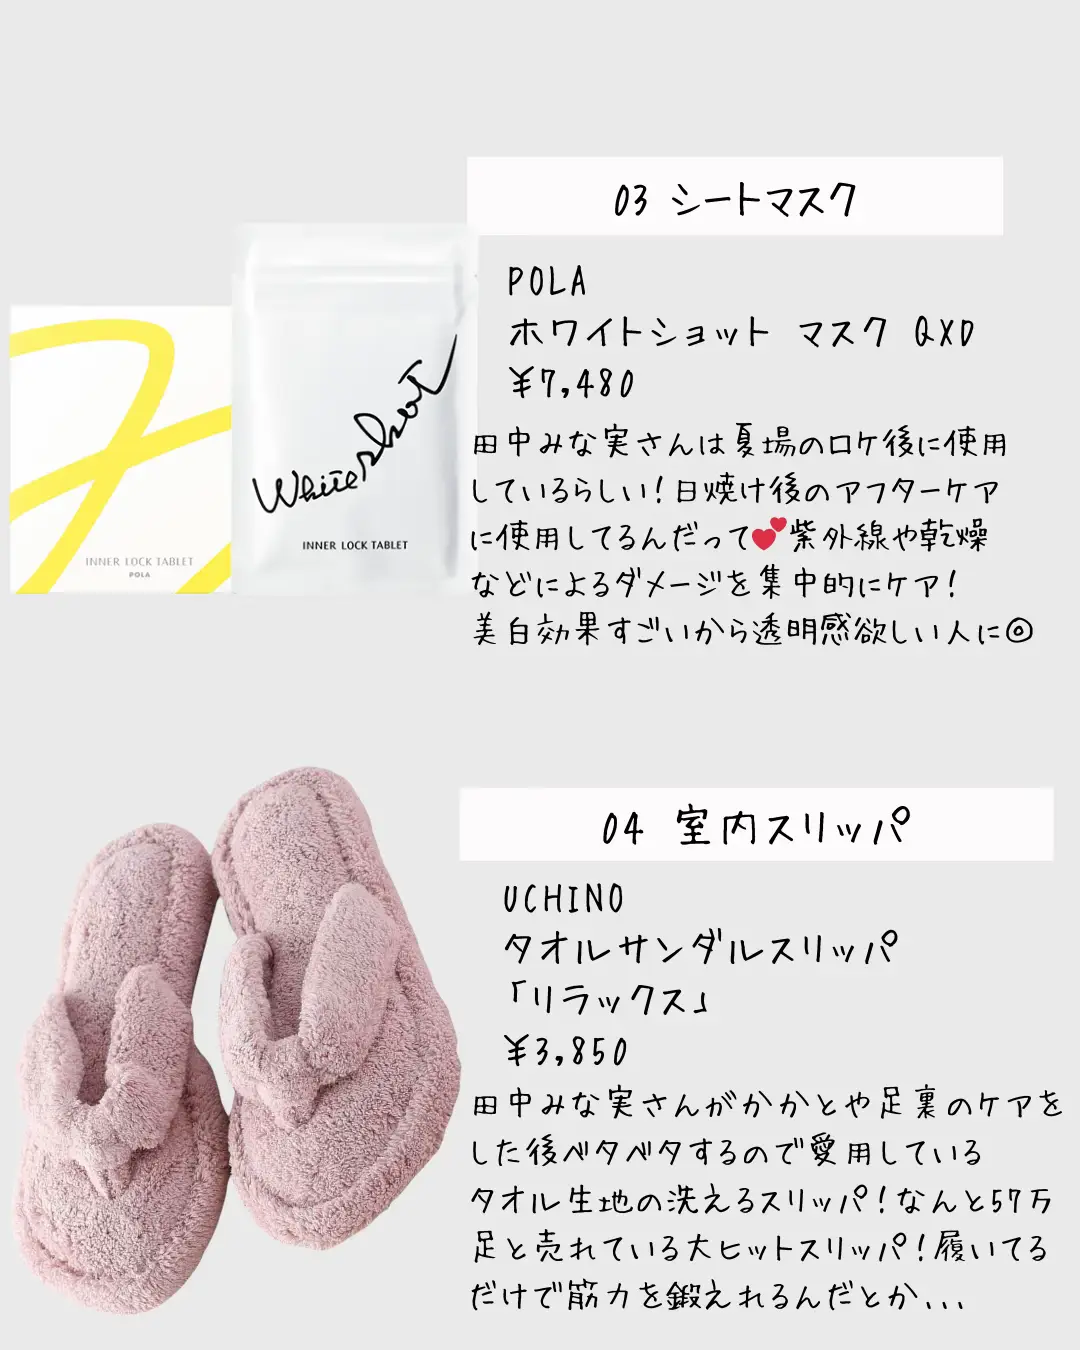 03 シートマスク
POLA
ホワイトショット マスク QXD
¥7,480
田中みな実さんは夏場のロケ後に使用
しているらしい！日焼け後のアフターケア
に使用してるんだって💕紫外線や乾燥
などによるダメージを集中的にケア！
美白効果すごいから透明感欲しい人に◎
INNER LOCK TABLET
POLA
Whiteshot
INNER LOCK TABLET
04 室内スリッパ
UCHINO
タオルサンダルスリッパ
「リラックス」
¥3,850
田中みな実さんがかかとや足裏のケアを
した後ベタベタするので愛用している
タオル生地の洗えるスリッパ！なんと57万
足と売れている大ヒットスリッパ！履いてる
だけで筋力を鍛えれるんだとか...